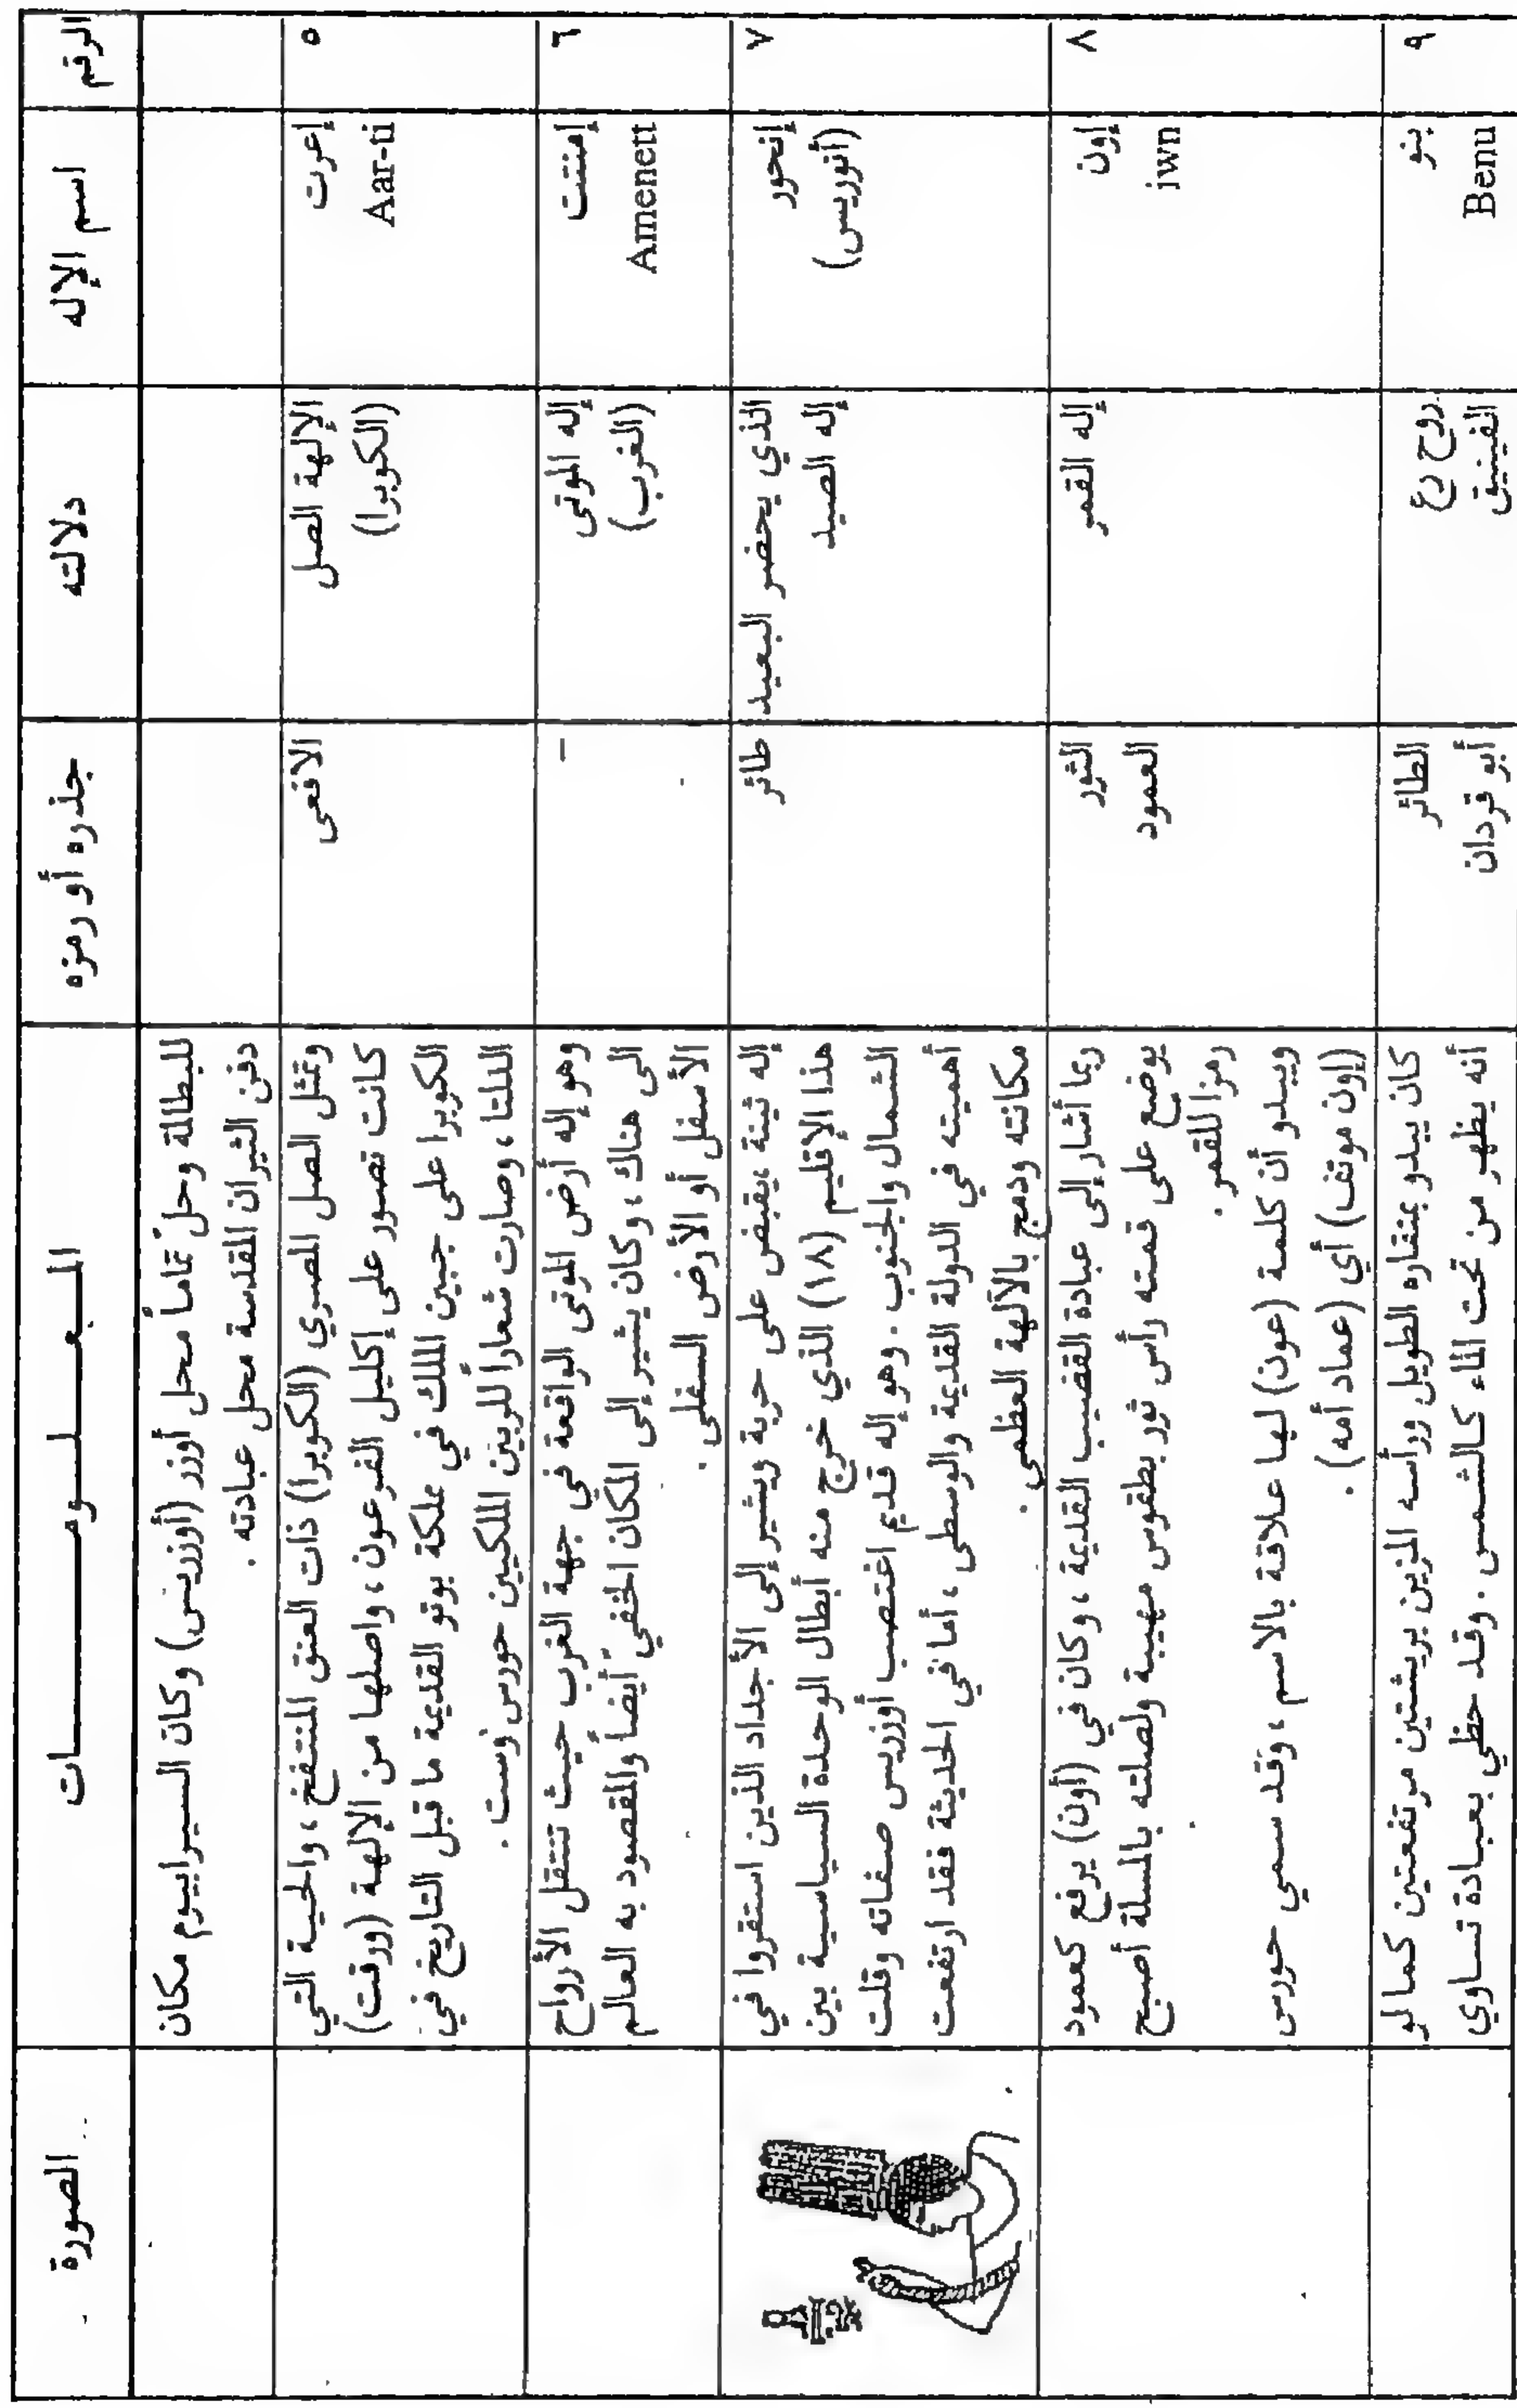 الرقم
اسم الإله
دلالته
جذره أو رمزه
المعلومات
الصورة
للبطالمة وحلّ تماماً محل أوزر (أوزريس) وكان السيرابيوم مكان
دفن الثيران المقدسة محل عبادته .
٥
إعرت
Aar-ti
الإلهة الصل
(الكوبرا)
الافعى
وتمثل الصل المصري (الكوبرا) ذات العنق المنتفخ ، والحية التي
كانت تصور على إكليل الفرعون ، واصلها من الإلهة (ورقت)
الكوبرا على جبين الملك في مملكة بوتو القديمة ما قبل التاريخ في
الدلتا ، وصارت شعاراً للربين الملكيين حورس وست .
٦
إمنتت
Amenett
إله الموتى
(الغرب)
–
وهو إله أرض الموتى الواقعة في جهة الغرب حيث تنتقل الأرواح
الى هناك ، وكان يشير إلى المكان الخفيّ أيضاً والمقصود به العالم
الأسفل أو الأرض السفلى .
٧
إنحور
(أنوريس)
الذي يحضر البعيد
إله الصيد
طائر
إله ثينة ، يقبض على حربة ويشير إلى الأجداد الذين استقروا في
هذا الإقليم (١٨) الذي خرج منه أبطال الوحدة السياسية بين
الشمال والجنوب . وهو إله قديم اغتصب أوزريس صفاته وقلت
أهميته في الدولة القديمة والوسطى ، أما في الحديثة فقد ارتفعت
مكانته ودمج بالآلهة العظمى .
٨
إون
iwn
إله القمر
الثور
العمود
ربما أشار إلى عبادة القضيب القديمة ، وكان في (أون) يرفع كعمود
يوضع على قمته رأس ثور بطقوس مهيبة ولصلته بالمسلة أصبح
رمزا للقمر .
ويبدو أن كلمة (عون) لها علاقة بالاسم ، وقد سمي حورس
(إون موتف) أي (عماد أمه) .
٩
بنو
Benu
روح رع
الفينيق
الطائر
أبو قردان
كان يبدو بمنقاره الطويل ورأسه المزين بريشتين مرتفعتين كما لو
أنه يظهر من تحت الماء كالشمس . وقد حظي بعبادة تساوي